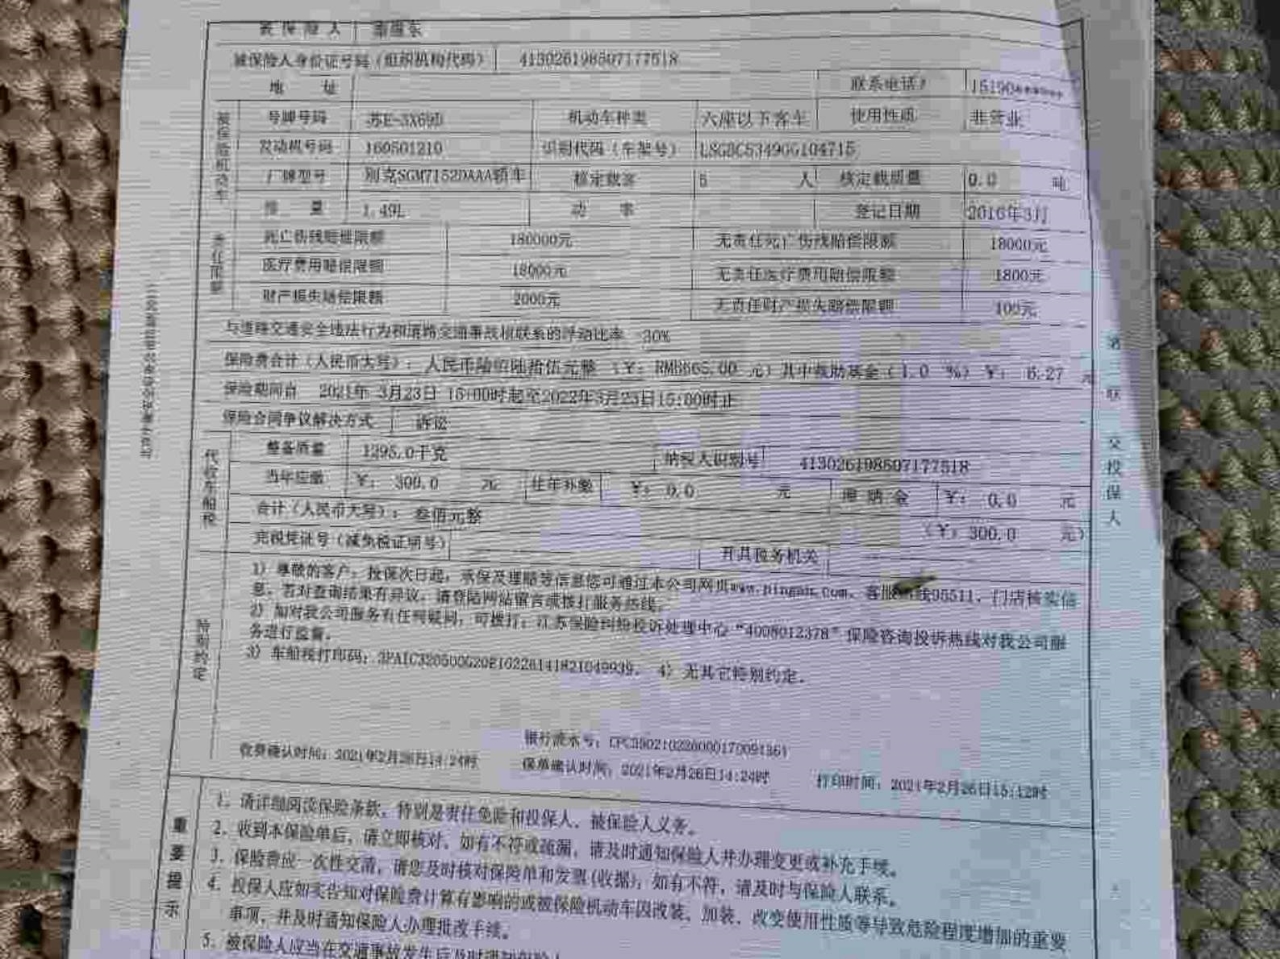 被保险人
被保险人身份证号码（组织机构代码） 413026198507177518
地 址 联系电话 15190******
被保险机动车
号牌号码 苏E-3X69D 机动车种类 六座以下客车 使用性质 非营业
发动机号码 160501210 识别代码（车架号） LSGBC5349GG104715
厂牌型号 别克SGM7152DAAA轿车 核定载客 5 人 核定载质量 0.0 吨
排 量 1.49L 功 率 登记日期 2016年3月
责任限额
死亡伤残赔偿限额 180000元 无责任死亡伤残赔偿限额 18000元
医疗费用赔偿限额 18000元 无责任医疗费用赔偿限额 1800元
财产损失赔偿限额 2000元 无责任财产损失赔偿限额 100元
与道路交通安全违法行为和道路交通事故相联系的浮动比率 -30%
保险费合计（人民币大写）：人民币陆佰陆拾伍元整 （￥：RMB665.00 元）其中救助基金（1.0 %）￥： 6.27 元
保险期间自 2021年 3月23日 15:00时起至2022年3月23日15:00时止
保险合同争议解决方式 诉讼
代收车船税
整备质量 1295.0千克 纳税人识别号 413026198507177518
当年应缴 ￥： 300.0 元 往年补缴 ￥：0.0 元 滞纳金 ￥： 0.0 元
合计（人民币大写）：叁佰元整 （￥：300.0 元）
完税凭证号（减免税证明号） 开具税务机关
特别约定
1）尊敬的客户：投保次日起，承保及理赔等信息您可通过本公司网页www.pingan.com、客服热线95511、门店核实信
息，若对查询结果有异议，请登陆网站留言或拨打服务热线。
2）如对我公司服务有任何疑问，可拨打：江苏保险纠纷投诉处理中心“4008012378”保险咨询投诉热线对我公司服
务进行监督。
3）车船税打印码： 4）无其它特别约定。
银行流水号：
收费确认时间：2021年2月26日14:24时 保单确认时间：2021年2月26日14:24时 打印时间：2021年2月26日15:12时
重要提示
1．请详细阅读保险条款，特别是责任免除和投保人、被保险人义务。
2．收到本保险单后，请立即核对，如有不符或疏漏，请及时通知保险人并办理变更或补充手续。
3．保险费应一次性交清，请您及时核对保险单和发票(收据)，如有不符，请及时与保险人联系。
4．投保人应如实告知对保险费计算有影响的或被保险机动车因改装、加装、改变使用性质等导致危险程度增加的重要
事项，并及时通知保险人办理批改手续。
5．被保险人应当在交通事故发生后及时通知保险人
联
交投保人